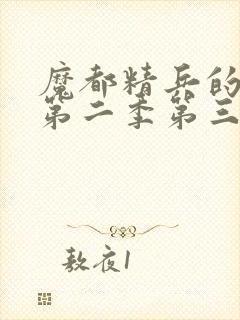 魔都精兵的
第二季第三
敖夜1